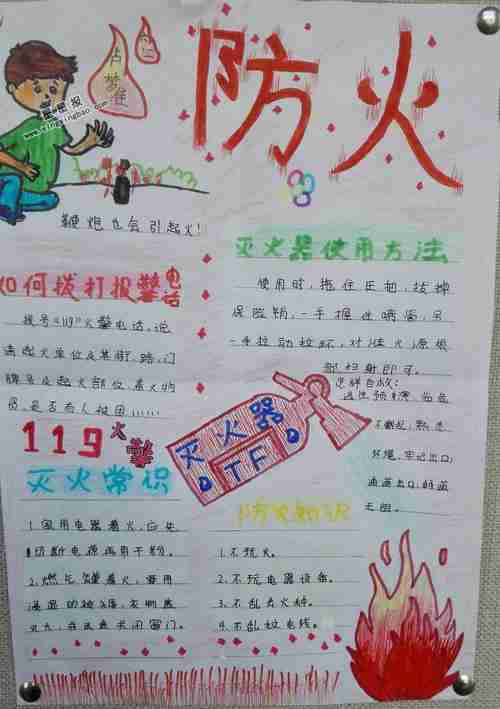 防火
卢梦佳
鞭炮也会引起火！
如何拨打报警电话
拨号《119》火警电话,说
清起火单位及其街,路,门
牌号及起火部位,着火物
质,是否有人被困……
119火警
灭火器使用方法
使用时,拖住压把,拔掉
保险销,一手握住喷管,另
一手拉动拉环,对准火源根
部扫射即可。
怎样自救：
遇险
不乱,熟悉
环境,牢记出口,
通道出口,畅通
无阻。
灭火器
TF
灭火常识
1.家用电器着火,应先
切断电源再用干粉。
2.燃气罐着火,要用
浸湿的被褥,衣物盖
灭火,并迅速关闭阀门。
防火知识
1.不玩火。
2.不玩电器设备。
3.不乱丢火种。
4.不乱拉电线。
星星报
www.xingxingbao.com